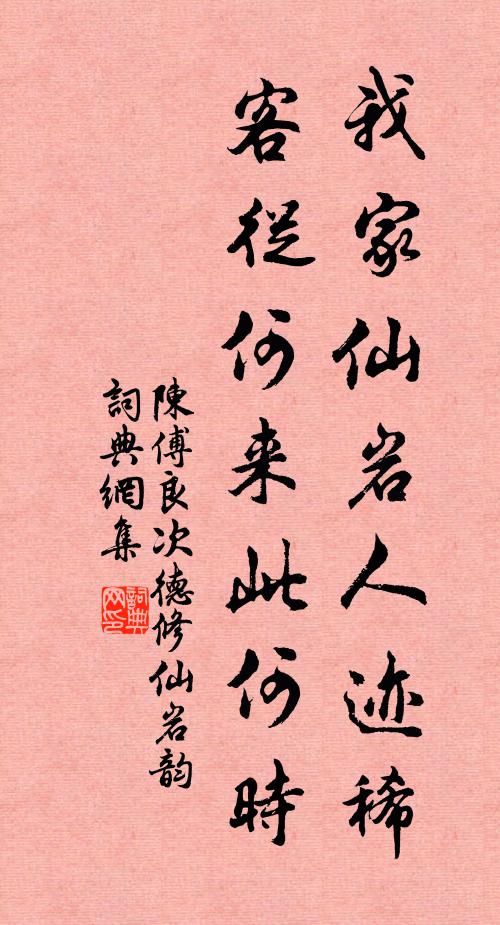 我家仙岩人迹稀
客從何来此何時
陳傅良次德修仙岩韵
詞典網集
詞典网印